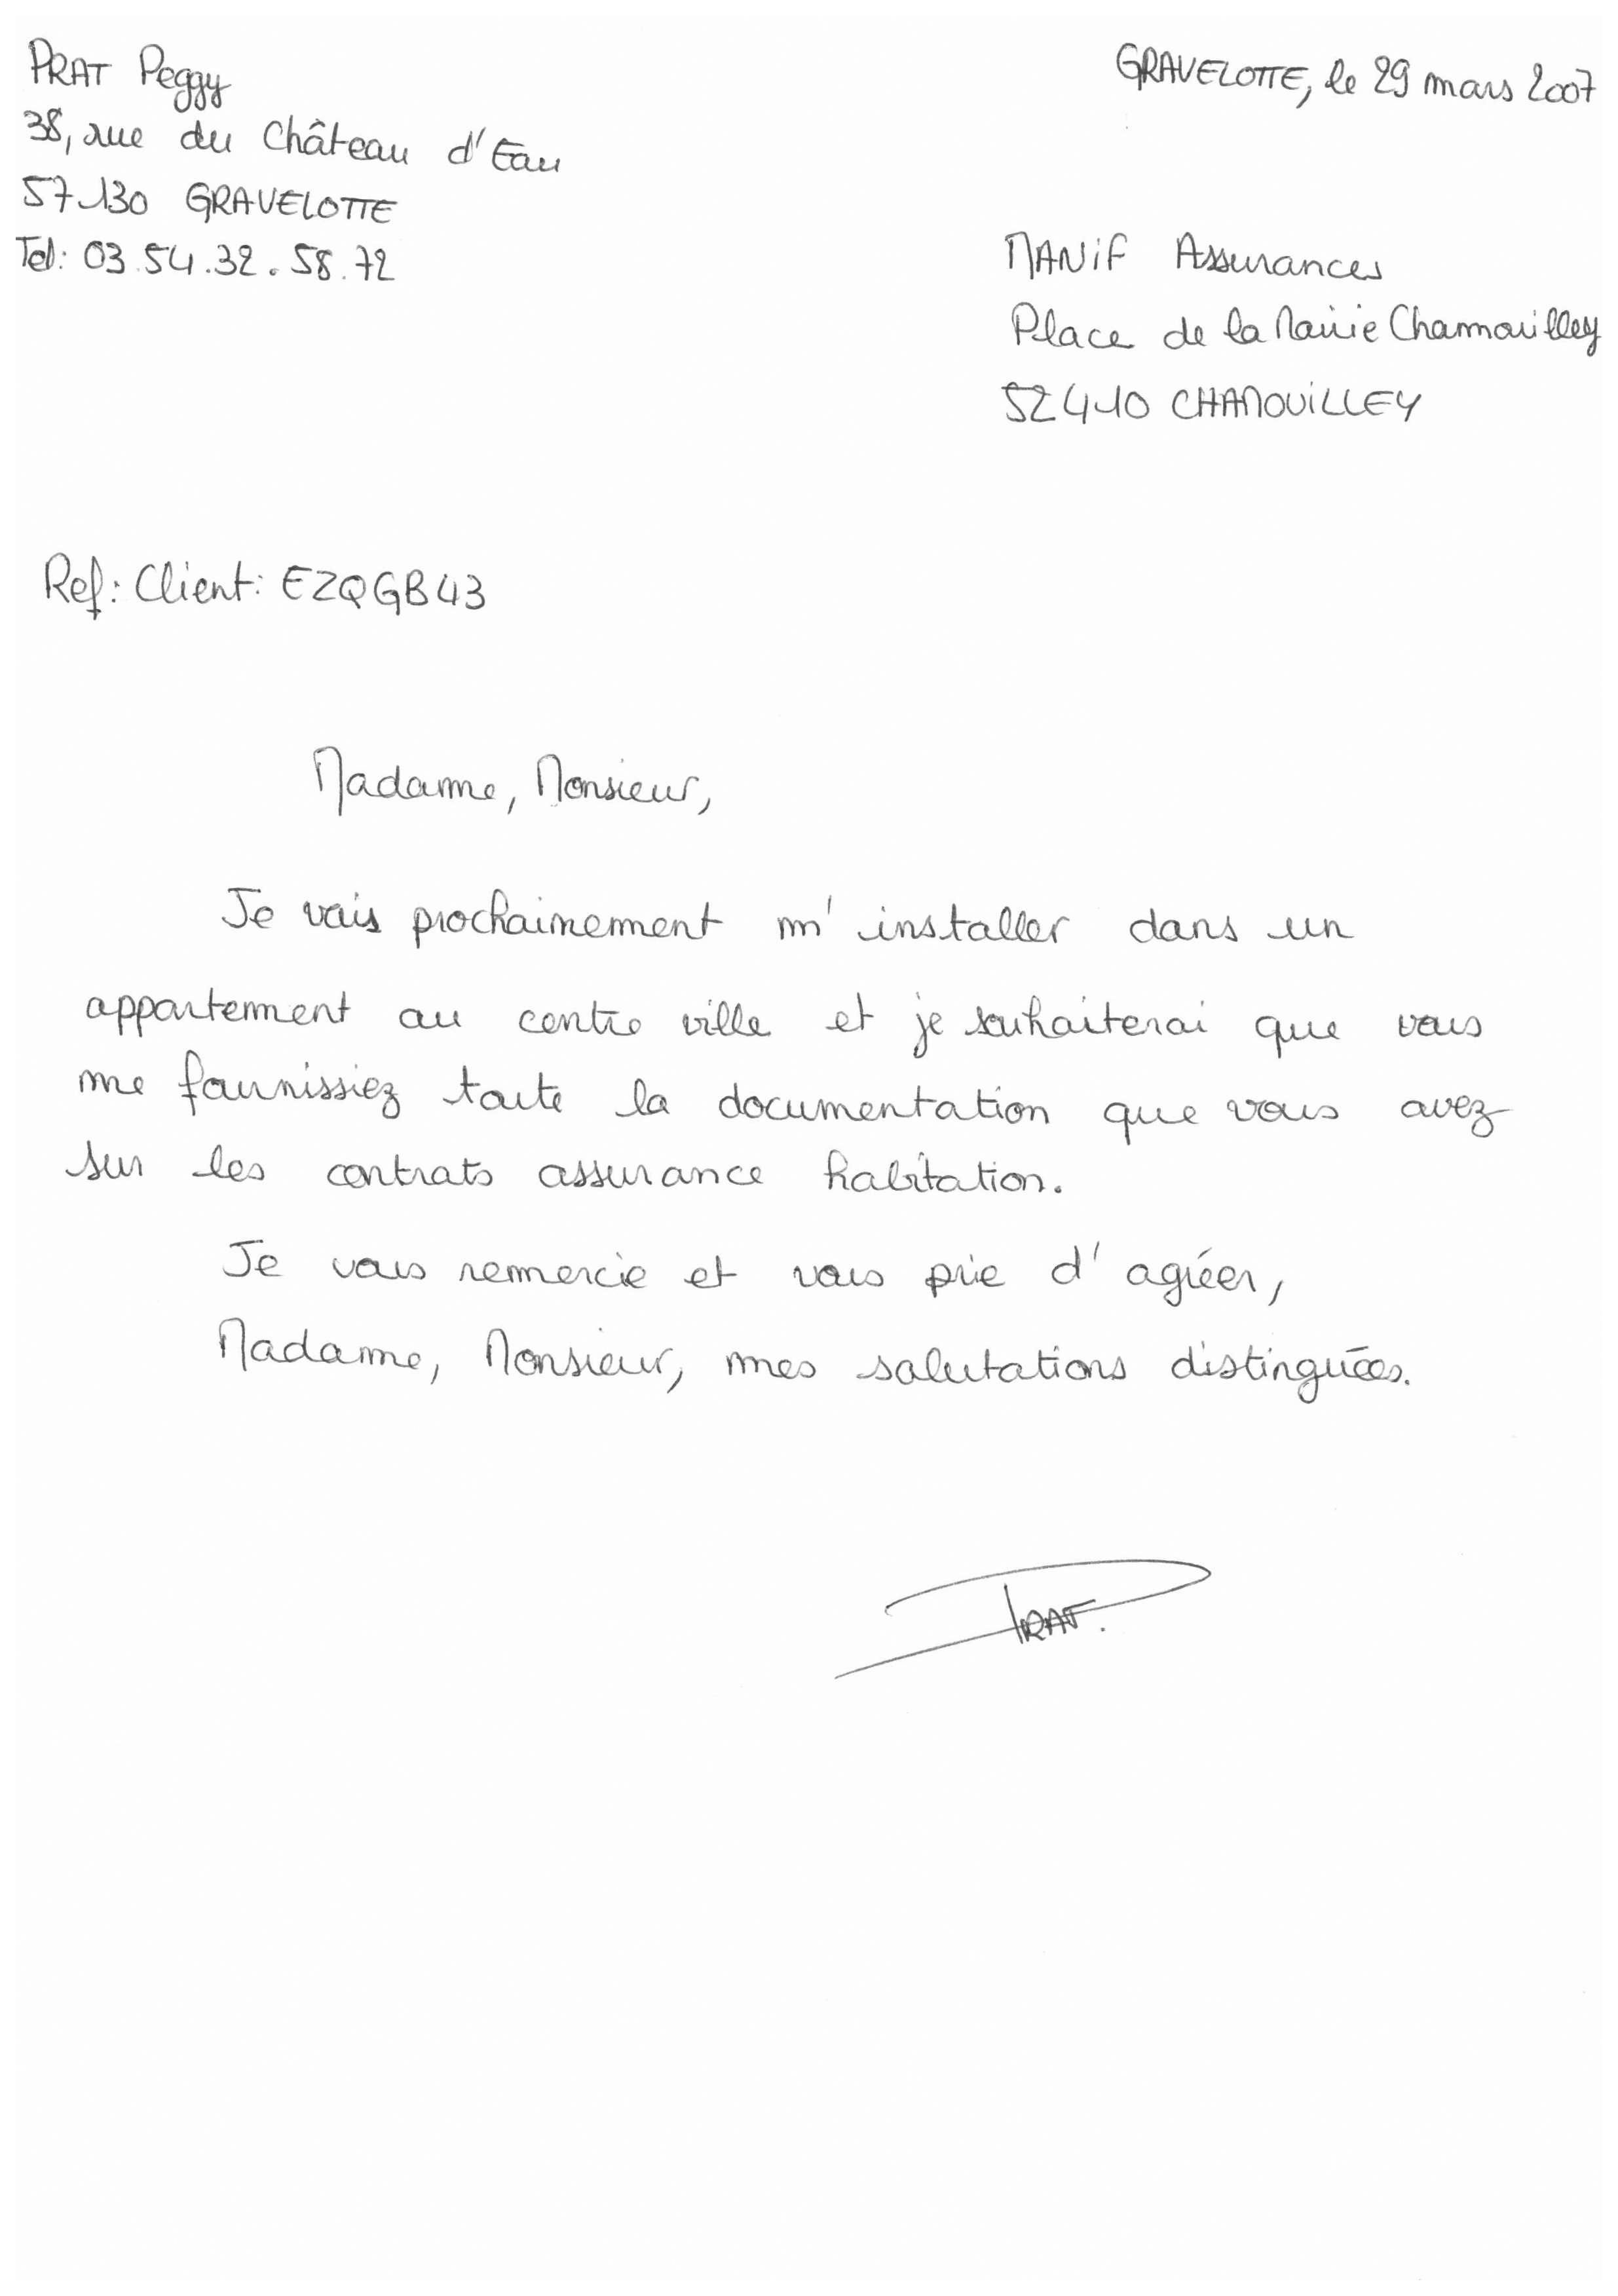 PRAT Peggy
38, rue du Château d'Eau
57130 GRAVELOTTE
Tel: 03.54.32.58.72
GRAVELOTTE, le 29 mars 2007
MANiF Assurances
Place de la Mairie Chamouilley
52410 CHAMOUiLLEY
Ref: Client: EZQGB43
Madame, Monsieur,
Je vais prochainement m'installer dans un
appartement au centre ville et je souhaiterai que vous
me fournissiez toute la documentation que vous avez
sur les contrats assurance habitation.
Je vous remercie et vous prie d'agréer,
Madame, Monsieur, mes salutations distinguées.
PRAT.